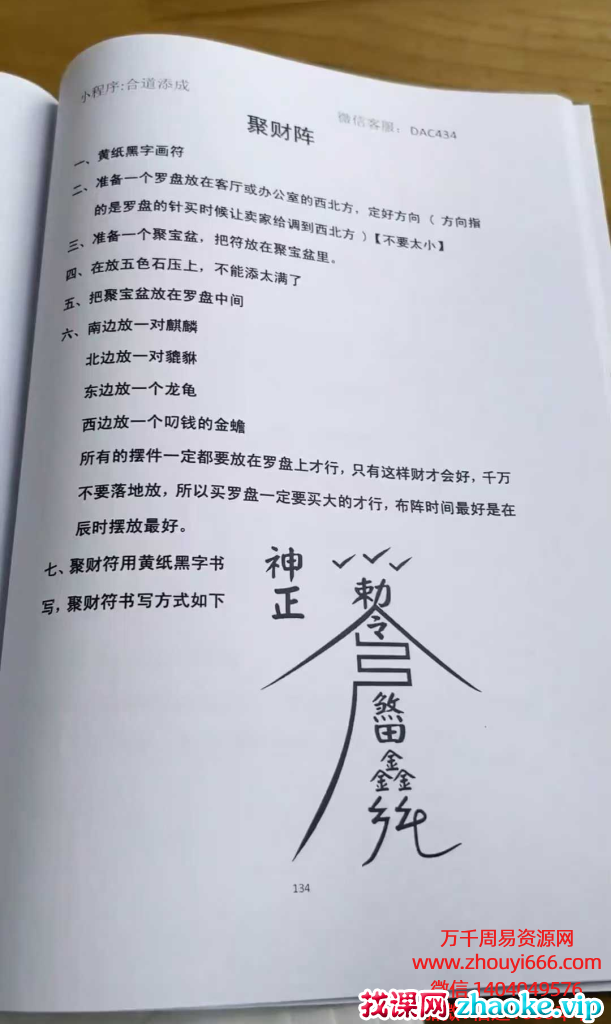 小程序:合道添成
微信客服：DAC434
聚财阵
一、黄纸黑字画符
二、准备一个罗盘放在客厅或办公室的西北方，定好方向（ 方向指
的是罗盘的针买时候让卖家给调到西北方 ）【不要太小】
三、准备一个聚宝盆，把符放在聚宝盆里。
四、在放五色石压上，不能添太满了
五、把聚宝盆放在罗盘中间
六、南边放一对麒麟
北边放一对貔貅
东边放一个龙龟
西边放一个叼钱的金蟾
所有的摆件一定都要放在罗盘上才行，只有这样财才会好，千万
不要落地放，所以买罗盘一定要买大的才行，布阵时间最好是在
辰时摆放最好。
七、聚财符用黄纸黑字书
写，聚财符书写方式如下
神
正
勅
令
煞
田
鑫
134
万千周易资源网
www.zhouyi666.com
微信 1404849576
找课网zhaoke.vip